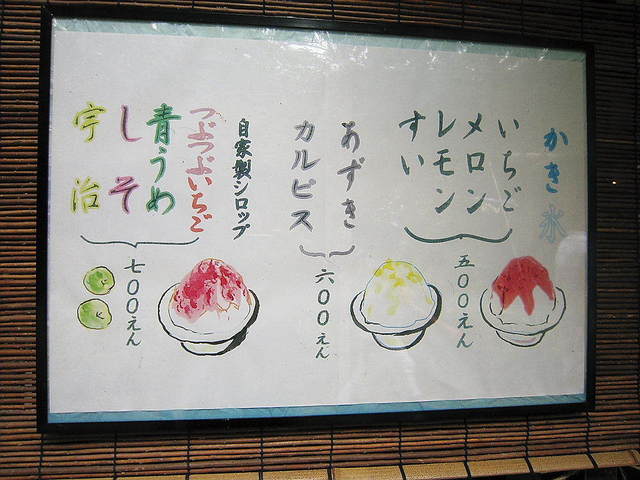 かき氷
いちご
メロン
レモン
すい
五〇〇えん
あずき
カルピス
六〇〇えん
自家製シロップ
つぶつぶいちご
青うめ
しそ
宇治
七〇〇えん